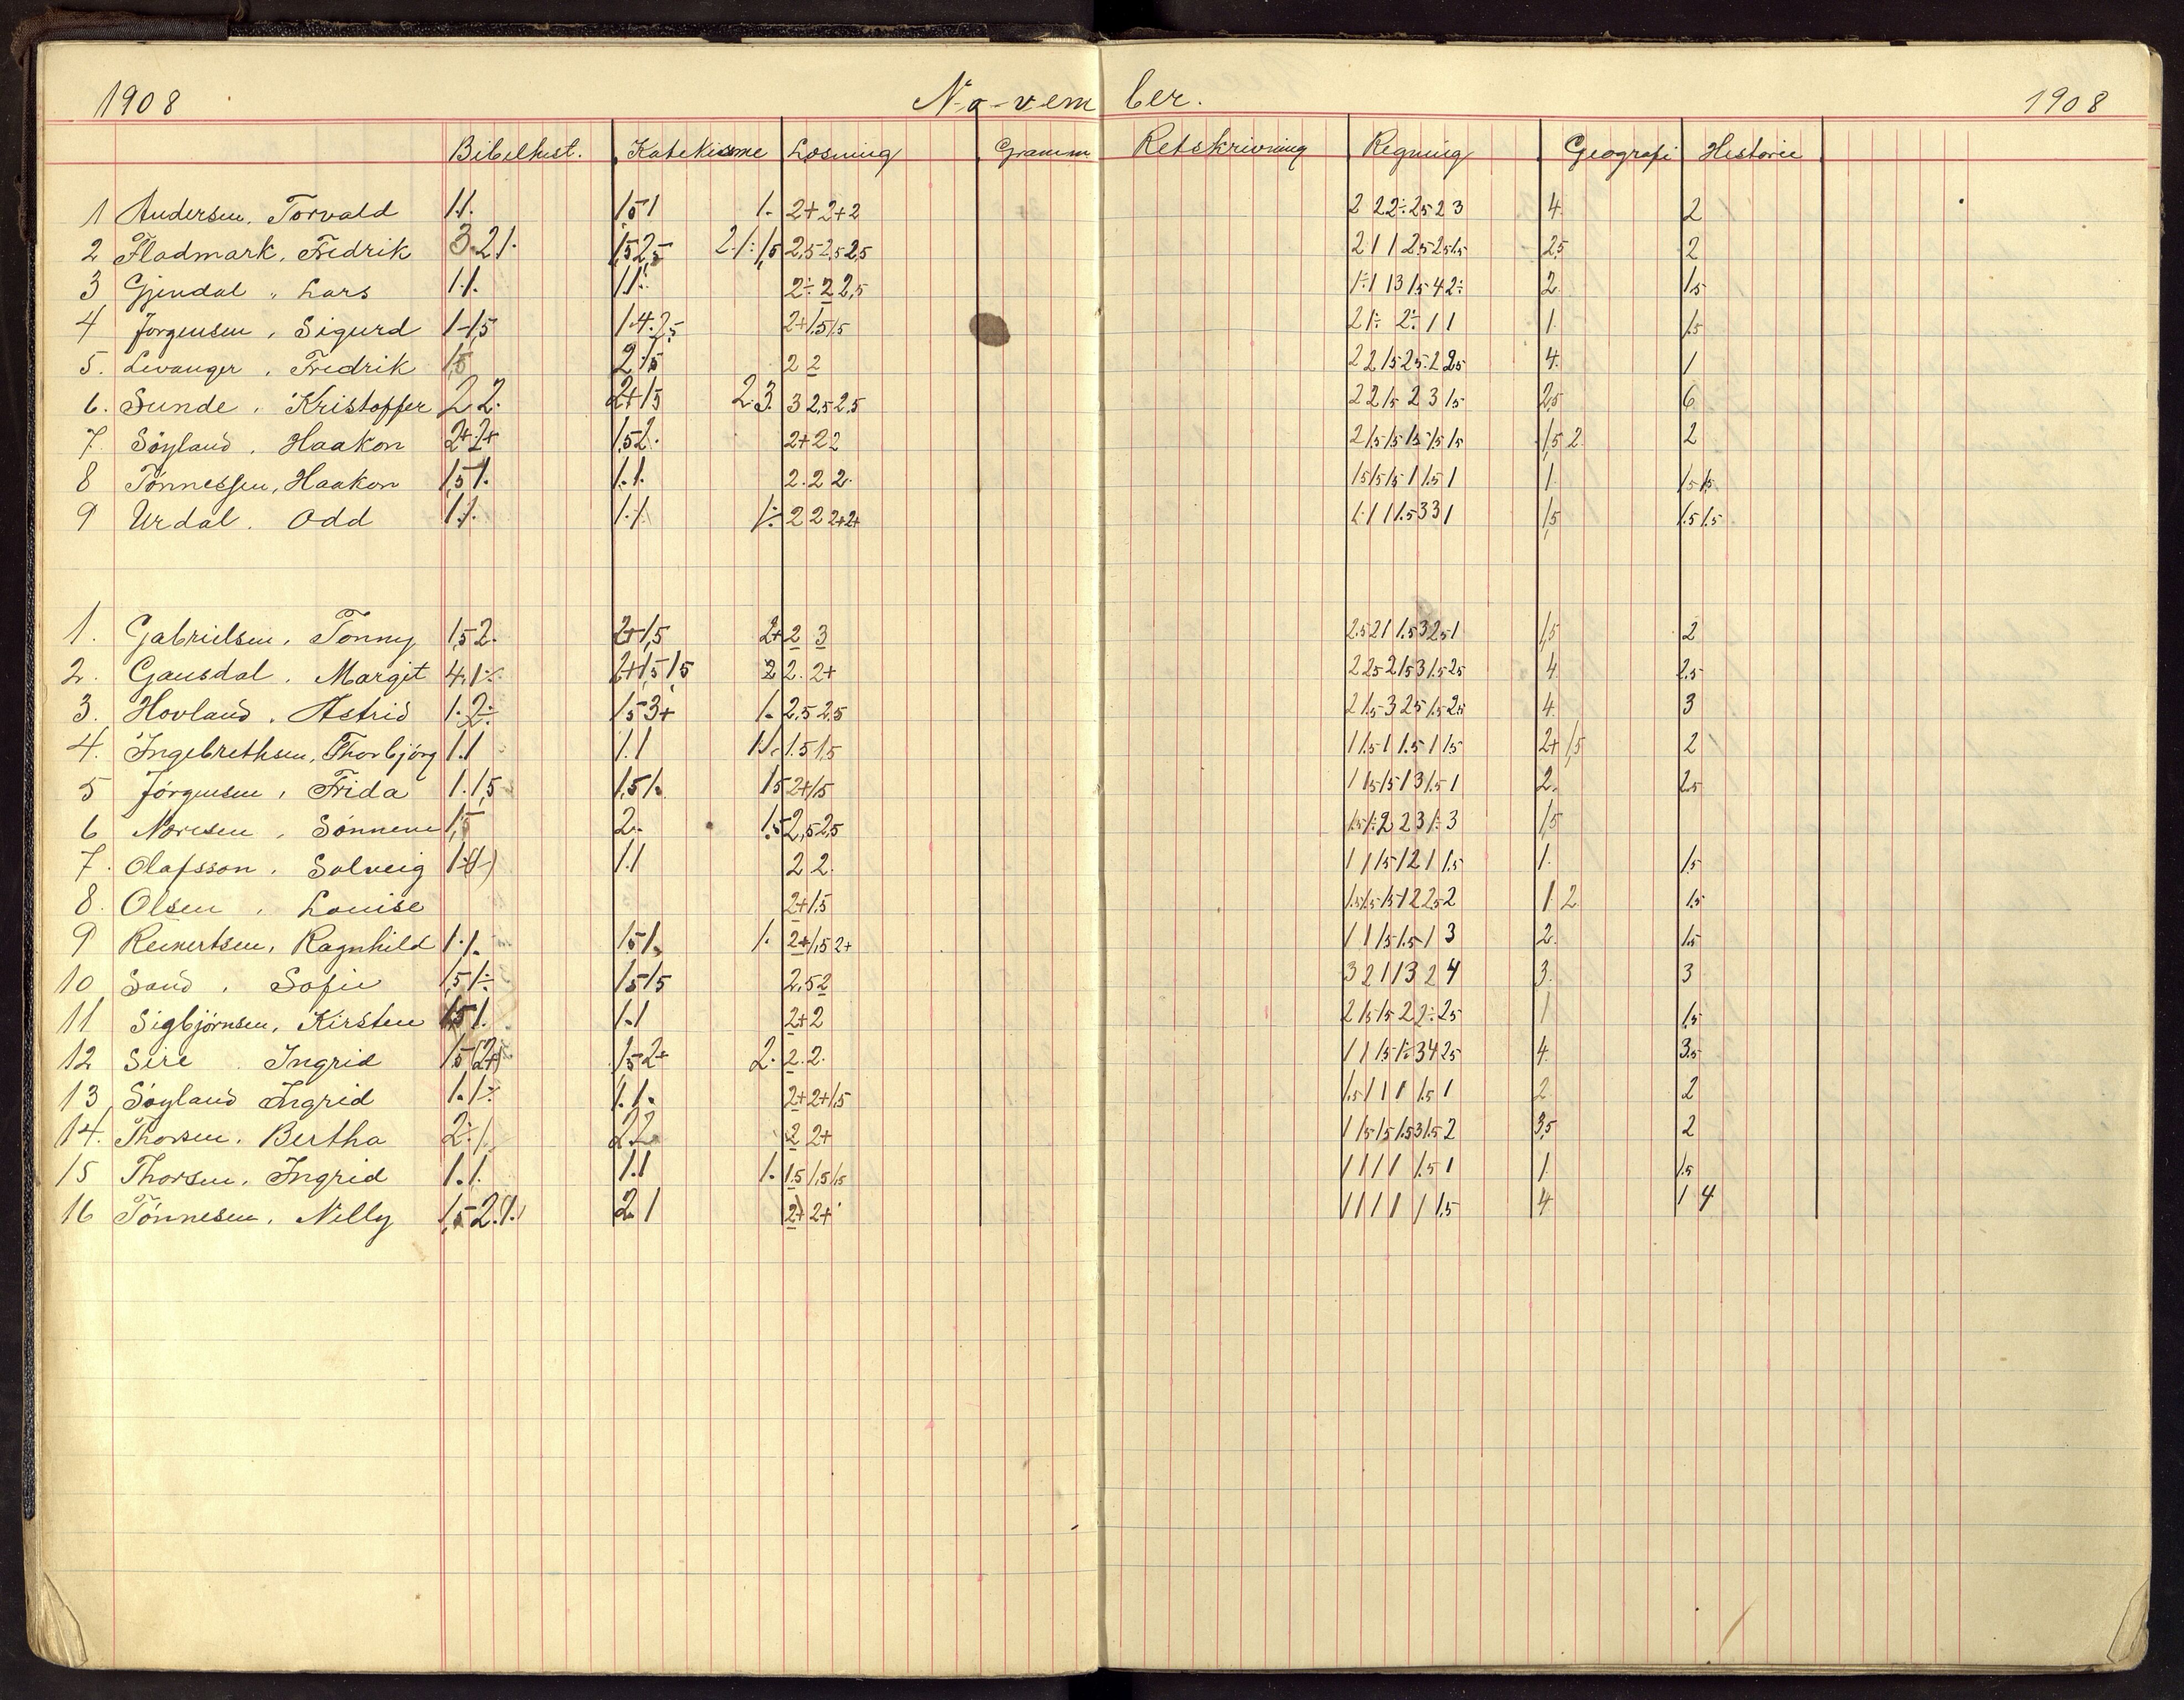 1908 November. 1908
Bibelhist. Katekisme Læsning Gramm Retskrivning Regning Geografi Historie
1 Andersen, Torvald 1.1. 1,5 1 1. 2+ 2+ 2 2 2 2÷ 2,5 2 3 4. 2
2 Fladmark, Fredrik 3.2 1. 1,5 2,5 2.1÷ 1,5 2,5 2,5 2,5 2 1 1 2,5 2,5 1,5 2,5 2
3 Gjendal, Lars 1.1. 1.1. 2÷ 2 2,5 1÷ 1 1 3 1,5 4 2÷ 2. 1,5
4 Jørgensen, Sigurd 1-1,5 1.4.2,5 2+ 1,5 1,5 2 1÷ 2÷ 1 1 1. 1,5
5. Levanger, Fredrik 1,5 2 1,5 2 2 4. 1
6. Sunde, Kristoffer 2 2. 2+ 1,5 2.3. 3 2,5 2,5 2 2 1,5 2 3 1,5 2,5 6
7. Söyland, Haakon 2+ 2+ 1,5 2. 2+ 2 2 2 1,5 1,5 1,5 1,5 1,5 1,5 2 2
8 Tönnessen, Haakon 1,5 1. 1.1. 2.2 2. 1,5 1,5 1,5 1 1,5 1 1. 1,5 1,5
9 Urdal, Odd 1.1. 1.1. 1÷ 2 2 2+ 2+ 1.1 1 1,5 3 3 1 1,5 1,5 1,5
1. Gabrielsen, Tonny 1,5 2. 2+ 1,5 2+ 2 3 2,5 2 1 1,5 3 2,5 1 1,5 2
2. Gausdal, Margit 4.1÷ 2+ 1,5 1,5 2 2. 2+ 2 2,5 2 1,5 3 1,5 2,5 4. 2,5
3. Hovland, Astrid 1.2÷ 1,5 3+ 1. 2,5 2,5 2 1,5 3 2,5 1,5 2,5 4. 3
4. Ingebrethsen, Thorbjörg 1.1 1.1 1.1. 1,5 1,5 1 1,5 1 1,5 1 1,5 2+ 1,5 2
5 Jörgensen, Frida 1.1,5 1,5 1. 1,5 2+ 1,5 1 1,5 1,5 1 3 1,5 1 2. 2,5
6 Næresen, Sönneve 1,5 2. 1,5 2,5 2,5 1,5 1÷ 2 2 3 1÷ 3 1,5
7. Olafsson, Solveig 1.(1) 1.1 2 2. 1 1 1,5 1 2 1 1,5 1. 1,5
8. Olsen, Louise 2+ 1,5 1,5 1,5 1,5 1 2 2,5 2 1. 2 1,5
9 Reinertsen, Ragnhild 1.1. 1,5 1. 1. 2+ 1,5 2+ 1 1 1,5 1,5 1 3 2. 1,5
10 Sand, Sofie 1,5 1÷ 1,5 1,5 2,5 2 3 2 1 1 3 2 4 3. 3
11 Sigbjörnsen, Kirsten 1,5 1. 1.1 2+ 2 2 1,5 1,5 2 2÷ 2,5 1 1,5
12 Sire, Ingrid 1,5 (2+) 1,5 2+ 2. 2.2. 1 1 1,5 1÷ 3 4 2,5 4. 3,5
13 Söyland Ingrid 1.1÷ 1.1. 2+ 2+ 1,5 1,5 1 1 1 1,5 1 2 2
14. Thorsen, Bertha 2÷ 1 2 2 2 2+ 1 1,5 1,5 1,5 3 1,5 2 3,5 2
15 Thorsen, Ingrid 1.1. 1.1 1. 1,5 1,5 1,5 1 1 1 1 1,5 1 1 1,5
16 Tönnesen, Nelly 1,5 2.1. 2 1 2+ 2+ 1 1 1 1 1 1,5 4 1 4